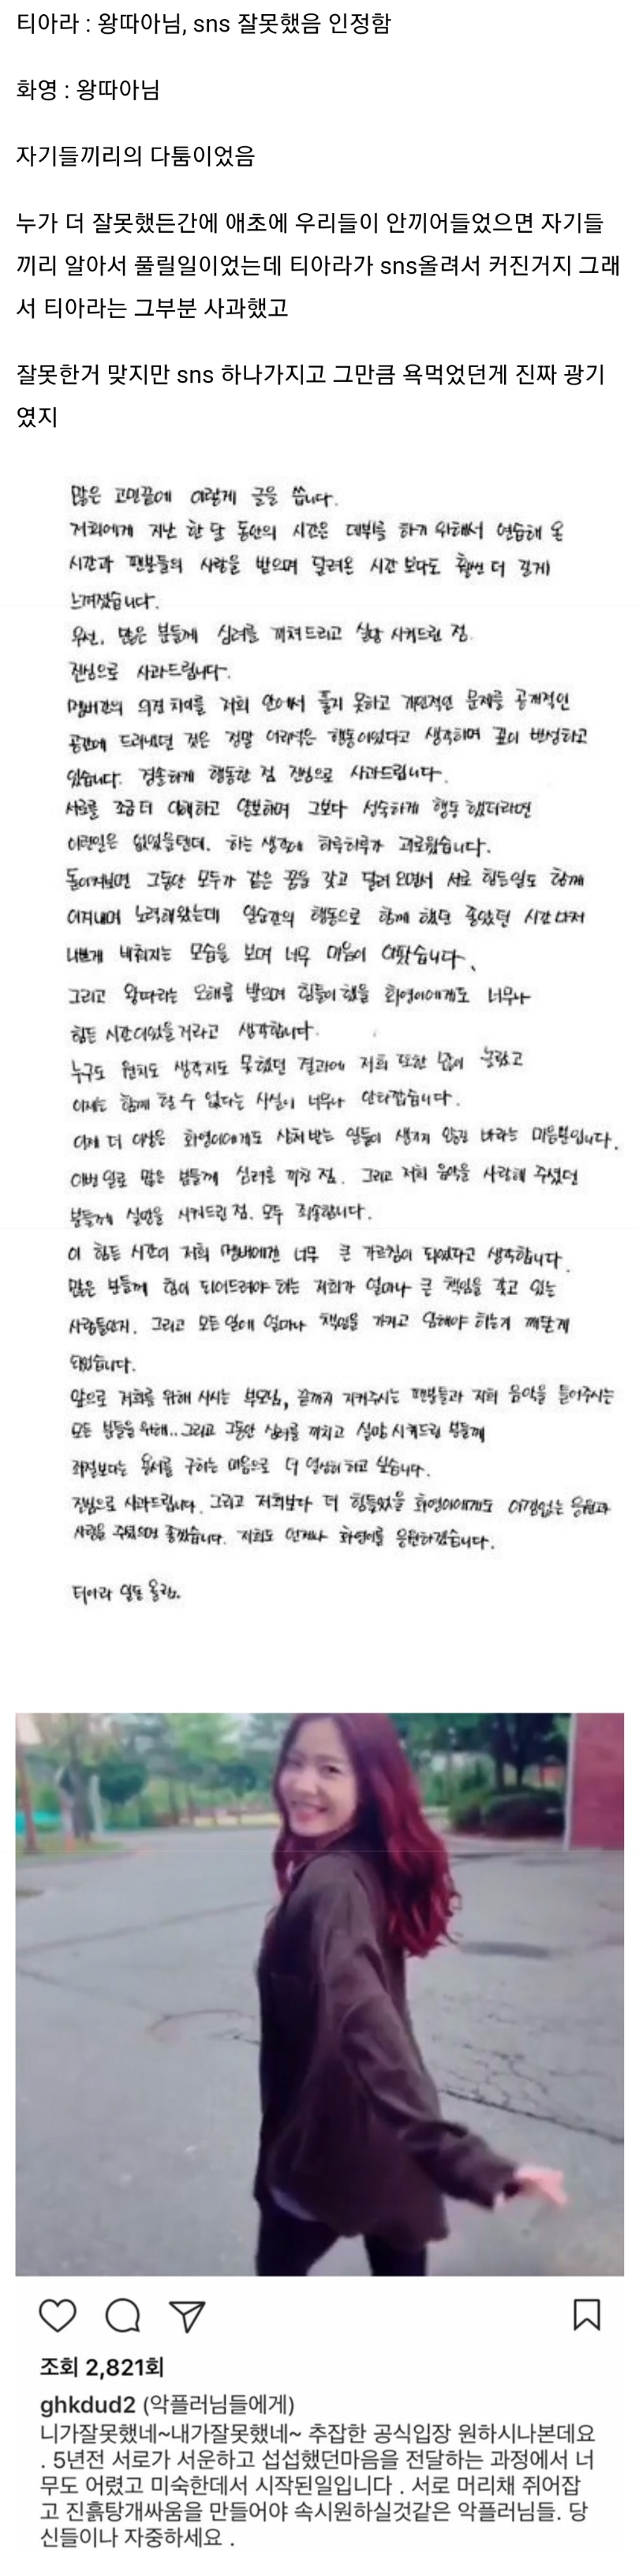 티아라 : 왕따아님, sns 잘못했음 인정함
화영 : 왕따아님
자기들끼리의 다툼이었음
누가 더 잘못했든간에 애초에 우리들이 안끼어들었으면 자기들
끼리 알아서 풀릴일이었는데 티아라가 sns올려서 커진거지 그래
서 티아라는 그부분 사과했고
잘못한거 맞지만 sns 하나가지고 그만큼 욕먹었던게 진짜 광기
였지
많은 고민끝에 이렇게 글을 씁니다.
저희에게 지난 한 달 동안의 시간은 데뷔를 하기 위해서 연습해 온
시간과 팬분들의 사랑을 받으며 달려온 시간 보다도 훨씬 더 길게
느껴졌습니다.
우선, 많은 분들께 심려를 끼쳐드리고 실망 시켜드린 점.
진심으로 사과드립니다.
멤버간의 의견 차이를 저희 안에서 풀지 못하고 개인적인 문제를 공개적인
공간에 드러냈던 것은 정말 어리석은 행동이었다고 생각하며 깊이 반성하고
있습니다. 경솔하게 행동한 점 진심으로 사과드립니다.
서로를 조금 더 이해하고 양보하며 그보다 성숙하게 행동 했더라면
이런일은 없었을텐데. 하는 생각에 하루하루가 괴로웠습니다.
돌이켜보면 그동안 모두가 같은 꿈을 갖고 달려 오면서 서로 힘든일도 함께
이겨내며 노력해왔는데 일순간의 행동으로 함께 했던 좋았던 시간마저
나쁘게 비춰지는 모습을 보며 너무 마음이 아팠습니다.
그리고 왕따라는 오해를 받으며 힘들어 했을 화영이에게도 너무나
힘든 시간이었을거라고 생각합니다.
누구도 원치도 생각지도 못했던 결과에 저희 또한 많이 놀랐고
이제는 함께 할 수 없다는 사실이 너무나 안타깝습니다.
이제 더 이상은 화영이에게도 상처 받는 일들이 생기지 않길 바라는 마음뿐입니다.
이번 일로 많은 분들께 심려를 끼친 점. 그리고 저희 음악을 사랑해 주셨던
분들께 실망을 시켜드린 점. 모두 죄송합니다.
이 힘든 시간이 저희 멤버에겐 너무 큰 가르침이 되었다고 생각합니다.
많은 분들께 힘이 되어드려야 하는 저희가 얼마나 큰 책임을 갖고 있는
사람들인지. 그리고 모든 일에 얼마나 책임을 가지고 임해야 하는지 깨닫게
되었습니다.
앞으로 저희를 위해 사시는 부모님, 끝까지 지켜주시는 팬분들과 저희 음악을 들어주시는
모든 분들을 위해.. 그리고 그동안 심려를 끼치고 실망 시켜드린 분들께
좌절보다는 용서를 구하는 마음으로 더 열심히 하고 싶습니다.
진심으로 사과드립니다. 그리고 저희보다 더 힘들었을 화영이에게도 아낌없는 응원과
사랑을 주셨으면 좋겠습니다. 저희도 언제나 화영이를 응원하겠습니다.
티아라 일동 올림.
조회 2,821회
ghkdud2 (악플러님들에게)
니가잘못했네~내가잘못했네~ 추잡한 공식입장 원하시나본데요
. 5년전 서로가 서운하고 섭섭했던마음을 전달하는 과정에서 너
무도 어렸고 미숙한데서 시작된일입니다 . 서로 머리채 쥐어잡
고 진흙탕개싸움을 만들어야 속시원하실것같은 악플러님들. 당
신들이나 자중하세요 .